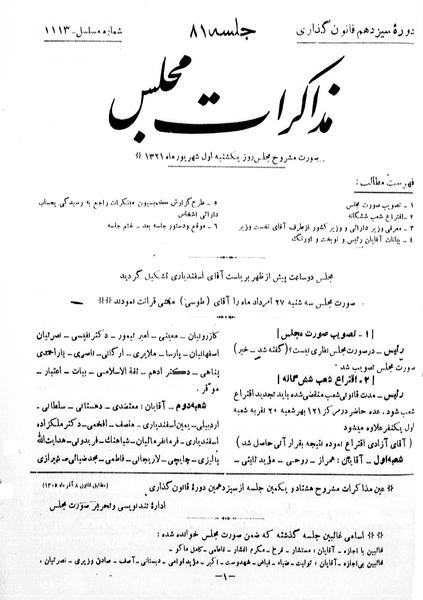 دورهٔ سیزدهم قانون گذاری
جلسه ۸۱
شماره مسلسل - ۱۱۱۳
مذاکرات مجلس
صورت مشروح مجلس روز یکشنبه اول شهریور ماه ۱۳۲۱
فهرست مطالب :
۱ - تصویب صورت مجلس
۲ - اقتراع شعب ششگانه
۳ - معرفی وزیر دارائی و وزیر کشور از طرف آقای نخست وزیر
٤ - بیانات آقایان رئیس و نوبخت و اورنگ
۵ - طرح گزارش کمیسیون مبتکرات راجع به رسیدگی بحساب
دارائی اشخاص
۶ - موقع و دستور جلسه بعد - ختم جلسه
مجلس دو ساعت پیش از ظهر بریاست آقای اسفندیاری تشکیل گردید
صورت مجلس سه شنبه ۲۷ امرداد ماه را آقای (طوسی) منشی قرائت نمودند
[ ۱ - تصویب صورت مجلس ]
رئیس - در صورت مجلس نظری نیست؟ (گفته شد - خیر)
صورت مجلس تصویب شد
[ ۲ - اقتراع شعب شش گانه ]
رئیس - مدت قانونی شعب منقضی شده باید تجدید اقتراع
شعب شود . عده حاضر در مرکز ۱۲۱ بهر شعبه ۲۰ نفر به شعبه
اول یکنفر علاوه میشود
( آقای آزادی اقتراع نموده نتیجه بقرار آتی حاصل شد )
شعبه اول - آقایان : همراز - روحی - مؤید ثابتی -
کازرونیان - معینی - امیر تیمور - دکتر نفیسی - نصرتیان
اصفهانیان - پارسا - ملایری - ارگانی - ناصری - یار احمدی
پناهی - دکتر ادهم - ثقة الاسلامی - بیات - اعتبار -
موقر .
شعبه دوم - آقایان : معتضدی - دهستانی - سلطانی -
اردبیلی - بهمن اسفندیاری - منصف - افخمی - دکتر ملک زاده
اسفندیاری - فرمانفرمائیان - شباهنگ - فریدونی - هدایت الله
پالیزی - چایچی - لاریجانی - فاطمی - مجد ضیائی - شیرازی
عین مذاکرات مشروح هشتاد و یکمین جلسه از سیزدهمین دورهٔ قانون گذاری
(مطابق قانون ۸ آذر ماه ۱۳۰۵)
ادارهٔ تندنویسی و تحریر صورت مجلس
اسامی غائبین جلسه گذشته که ضمن صورت مجلس خوانده شده :
غائبین با اجازه - آقایان : مستشار - فرخ - مکرم افشار - فاطمی - کامل ماکو -
غائبین بی اجازه - آقایان : تولیت - ضیاء - فیاض - شهدوست - اکبر - مؤید قوامی - دبستانی - آصف - صادق وزیری - نصرتیان ,
- ۱ -